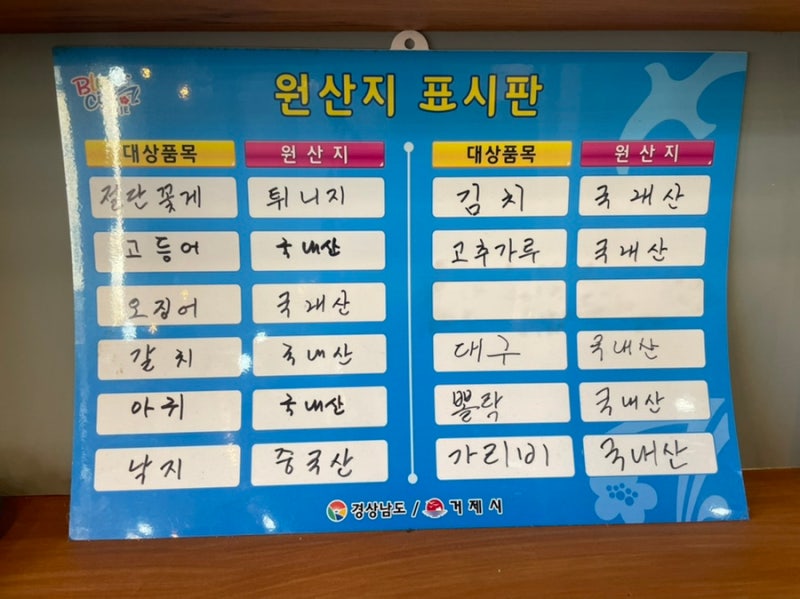 원산지 표시판
대상품목 원산지
절단꽃게 튀니지
고등어 국내산
오징어 국내산
갈치 국내산
아귀 국내산
낙지 중국산
대상품목 원산지
김치 국내산
고추가루 국내산
대구 국내산
뽈락 국내산
가리비 국내산
경상남도 / 거제시